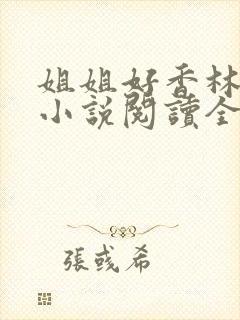 姐姐好香林
小說閱讀全
張彧希